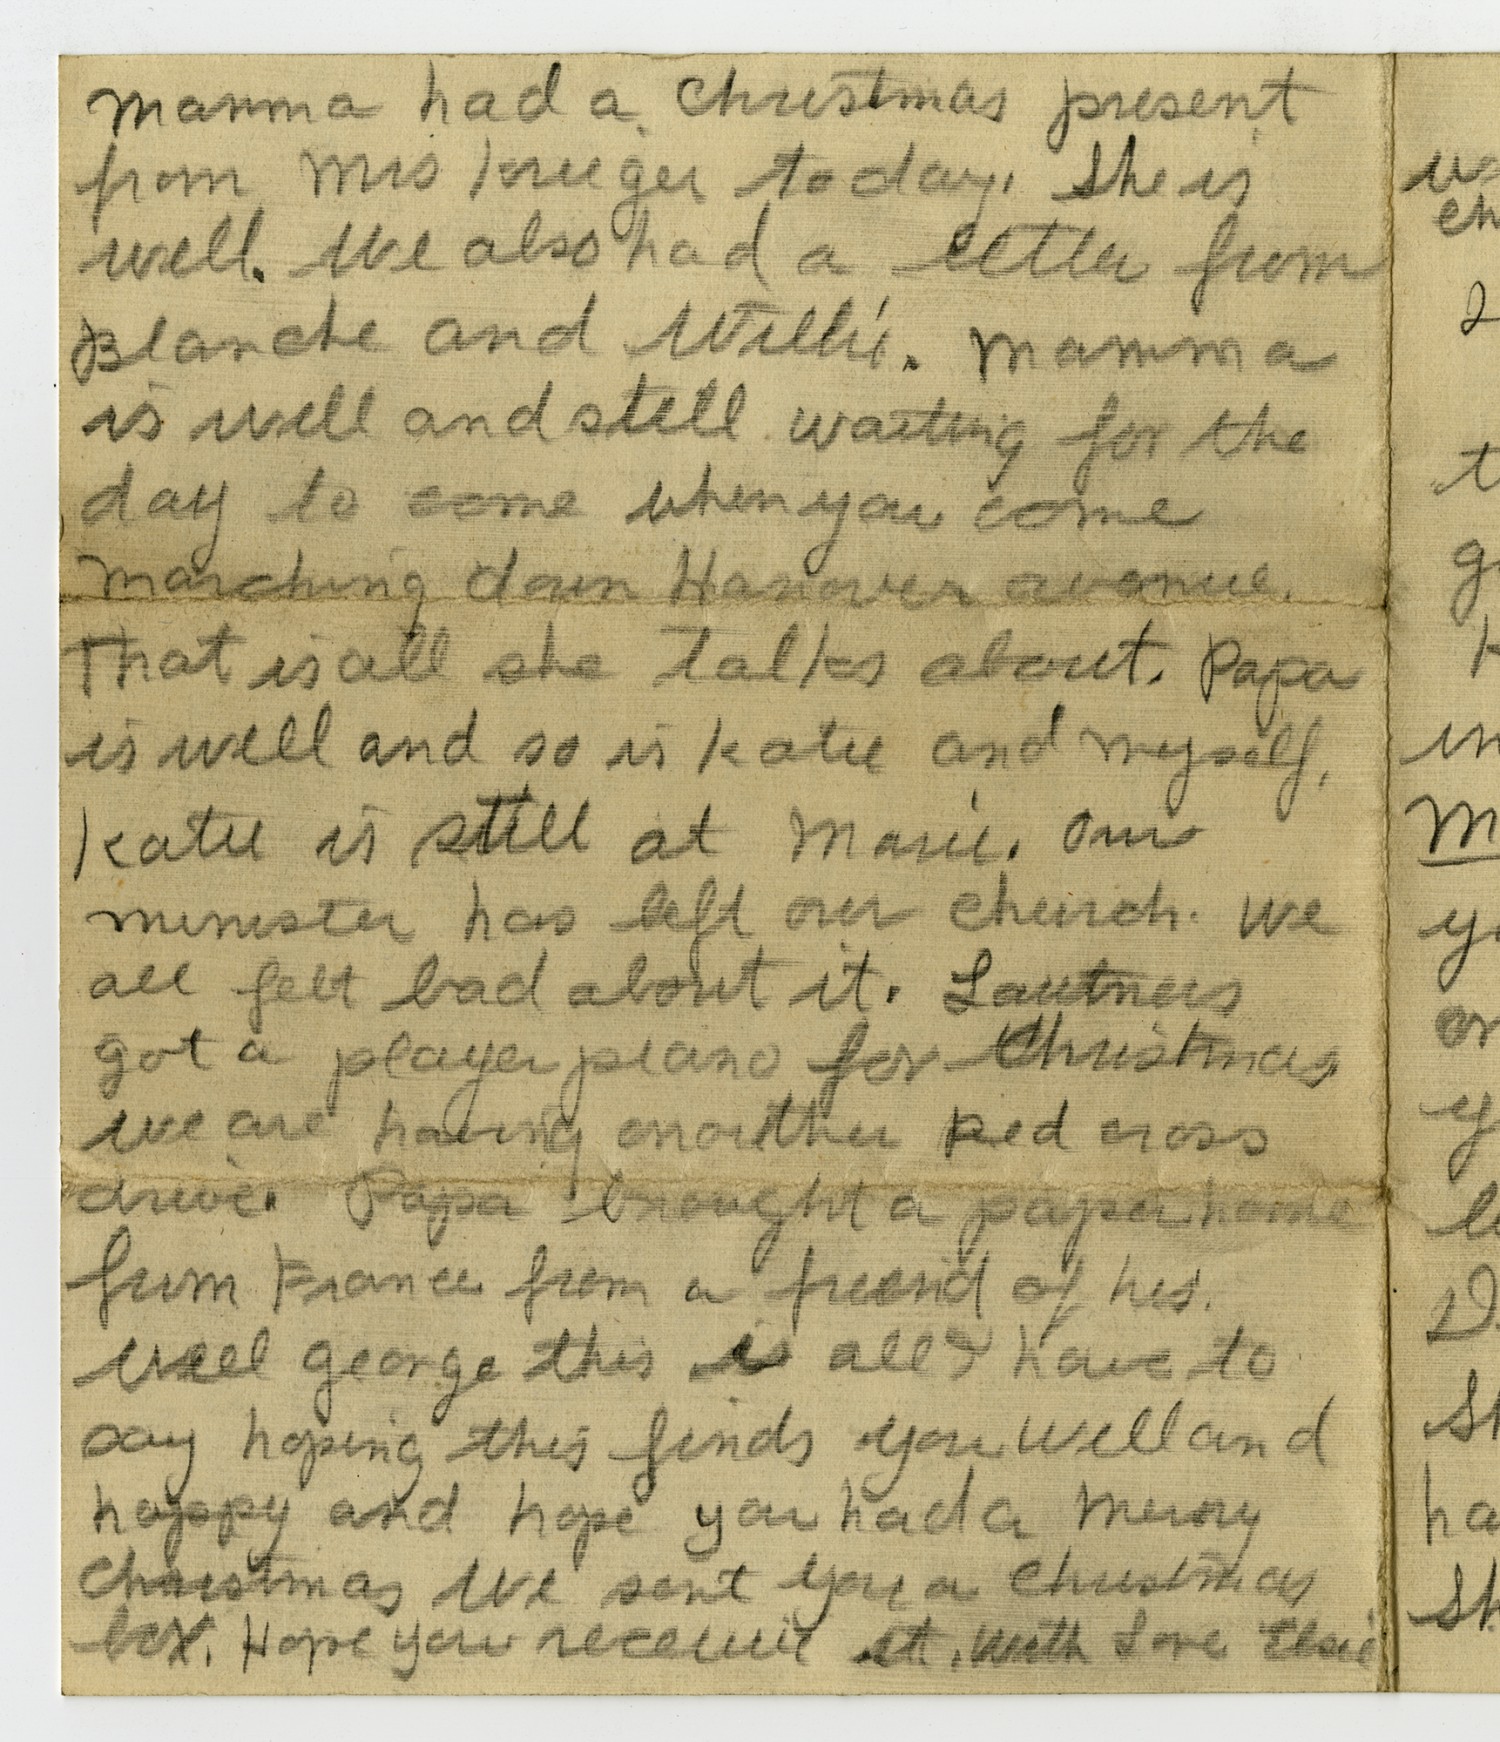 Mamma had a Christmas present
from Mrs Krueger today. She is
well. We also had a letter from
Blanche and Willie. Mamma
is well and still waiting for the
day to come when you come
marching down Hanover avenue.
That is all she talks about. Papa
is well and so is Katie and myself.
Katie is still at Marie. Our
minister has left our church. We
all felt bad about it. Lautners
got a player piano for Christmas
we are having another Red cross
drive. Papa brought a paper home
from France from a friend of his.
Well George this is all I have to
say hoping this finds you well and
happy and hope you had a Merry
Christmas We sent you a Christmas
box. Hope you receive it. With Love Elsie